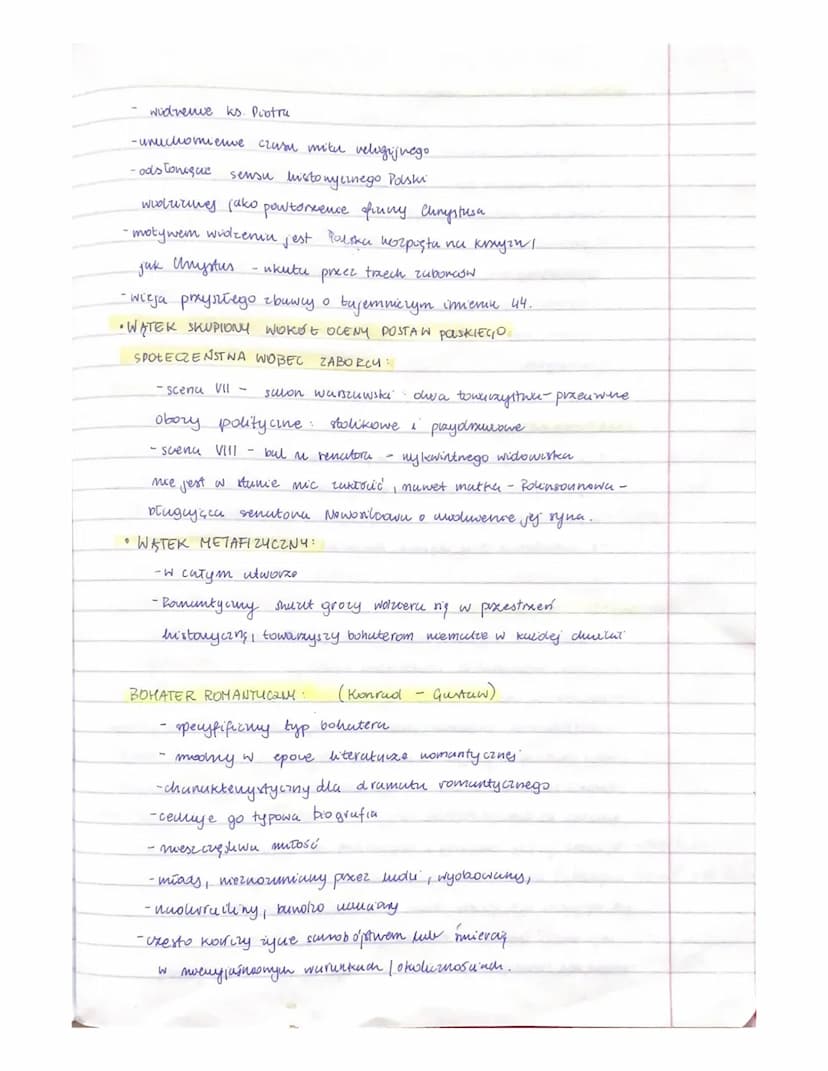 - widzenie ks. Piotra
- uruchomienie czasu mitu religijnego
- odsłonięcie sensu historycznego Polski
widzianej jako powtórzenie ofiary Chrystusa
- motywem widzenia jest Polska rozpięta na krzyżu,
jak Chrystus - ukuta przez trzech zaborców
- wizja przyszłego zbawcy o tajemniczym imieniu 44.
• WĄTEK SKUPIONY WOKÓŁ OCENY POSTAW POLSKIEGO
SPOŁECZEŃSTWA WOBEC ZABORCY:
- scena VII - salon warszawski: dwa towarzystwa - przeciwne
obozy polityczne: stolikowe i przydrzwiowe
- scena VIII - bal u senatora - wykwintnego widowiska
nie jest w stanie nic zakłócić, nawet matka - Rollinsonowa -
błagająca senatora Nowosilcowa o uwolnienie jej syna.
• WĄTEK METAFIZYCZNY:
- w całym utworze
- Romantyczny świat grozy wdziera się w przestrzeń
historyczną, towarzyszy bohaterom niemalże w każdej chwili
BOHATER ROMANTYCZNY: (Konrad - Gustaw)
- specyficzny typ bohatera
- modny w epoce literaturze romantycznej
- charakterystyczny dla dramatu romantycznego
- cechuje go typowa biografia
- nieszczęśliwa miłość
- młody, niezrozumiany przez ludzi, wyobcowany,
- nadwrażliwy, bardzo uczuciowy
- często kończy życie samobójstwem lub śmiercią
w niewyjaśnionych warunkach / okolicznościach.